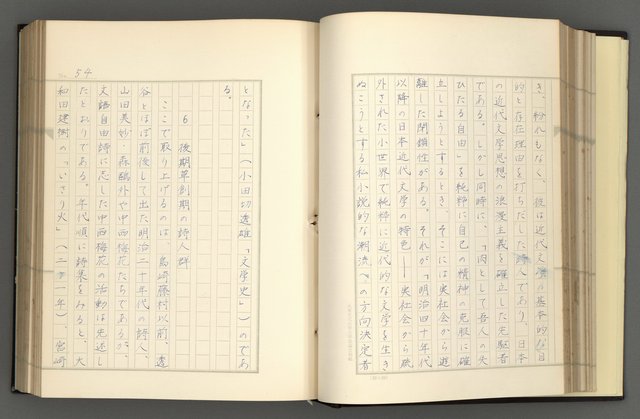 き、紛れもなく、彼は近代文学の基本的な目
的と存在理由を打ちだした詩人であり、日本
の近代文学思想の浪漫主義を確立した先駆者
である。しかし同時に、「内として吾人の失
ひたる自由」を純粋に自己の精神の克服に確
立しようとするとき、そこには実社会から遊
離した閉鎖性がある。それが「明治四十年代
以降の日本近代文学の特色——実社会から疎
外された小世界で純粋に近代的な文学を生き
ぬこうとする私小説的な潮流への方向決定者
となった」(小田切進雄『文学史』)のであ
る。
6 後期草創期の詩人群
ここで取り上げるのは、島崎藤村以前、透
谷とほぼ前後して出た明治二十年代の詩人、
山田美妙・森鷗外や中西梅花たちであるが、
文語自由詩に徹した中西梅花の活動は先述し
たとおりである。年代順に詩集をみると、大
和田建樹の「いさり火」(二十一年)、宮崎
54